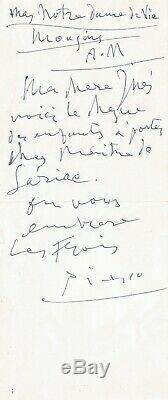 Mas Notre Dame de Vie
Mougins
A.M
Ma chere Inès
voici le chèque
des enfants à porter
chez maitre de
Sariac.
on vous
embrasse
Les Trois
Picasso